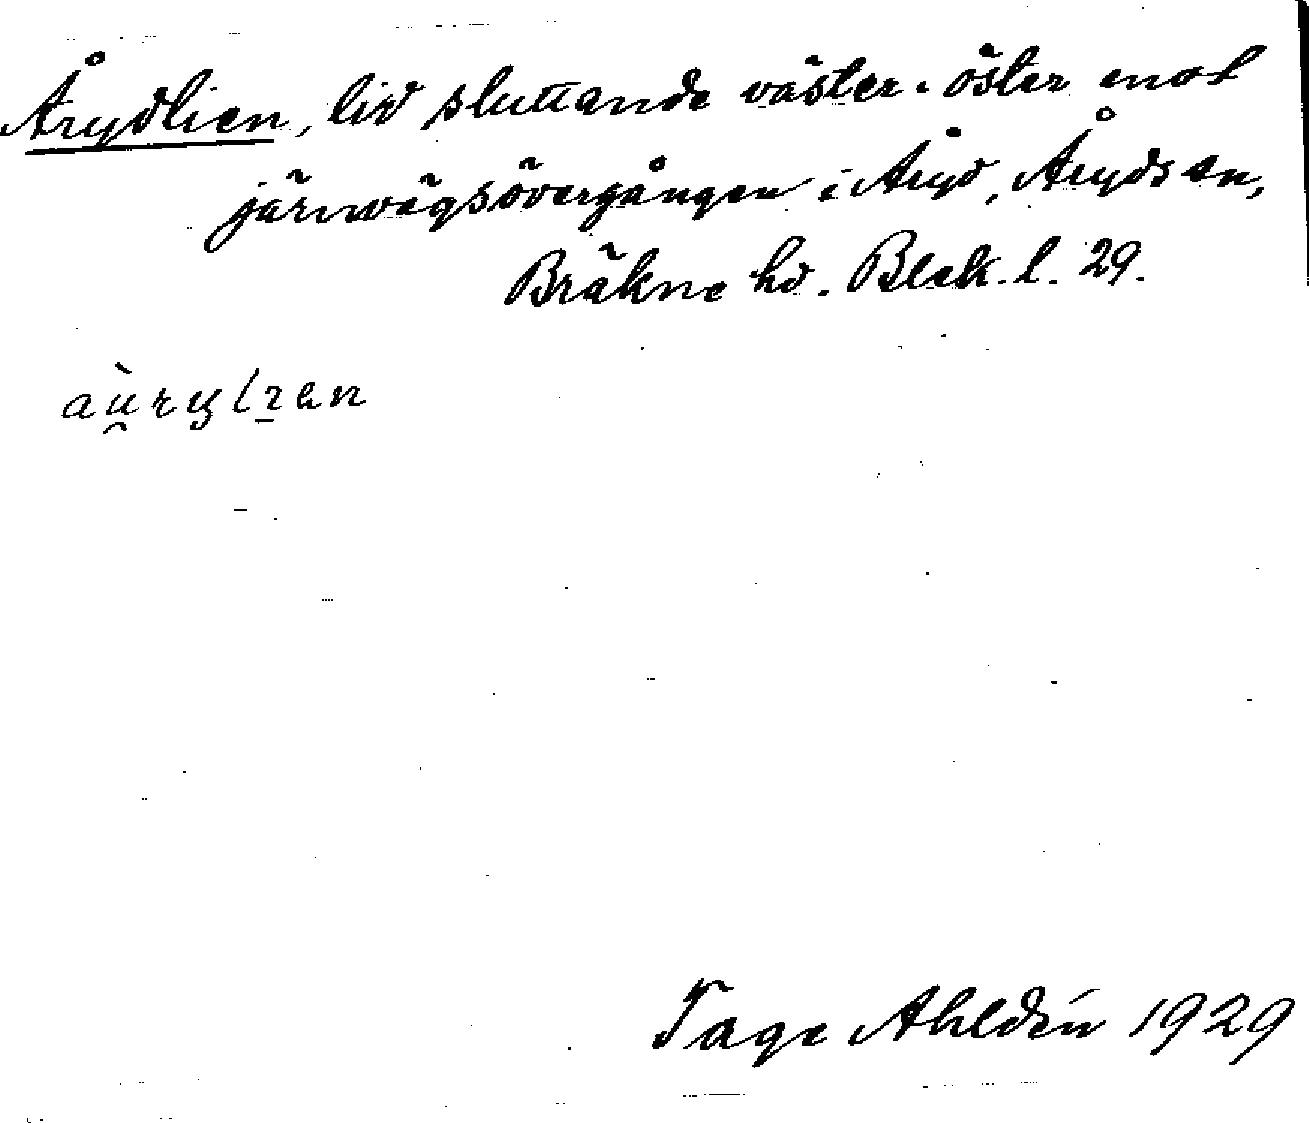 Årydlien, lid sluttande väster-öster mot
järnvägsövergången i Åryd, Åryds sn,
Bräkne hd. Blek. l. 29.
Tage Ahldén 1929